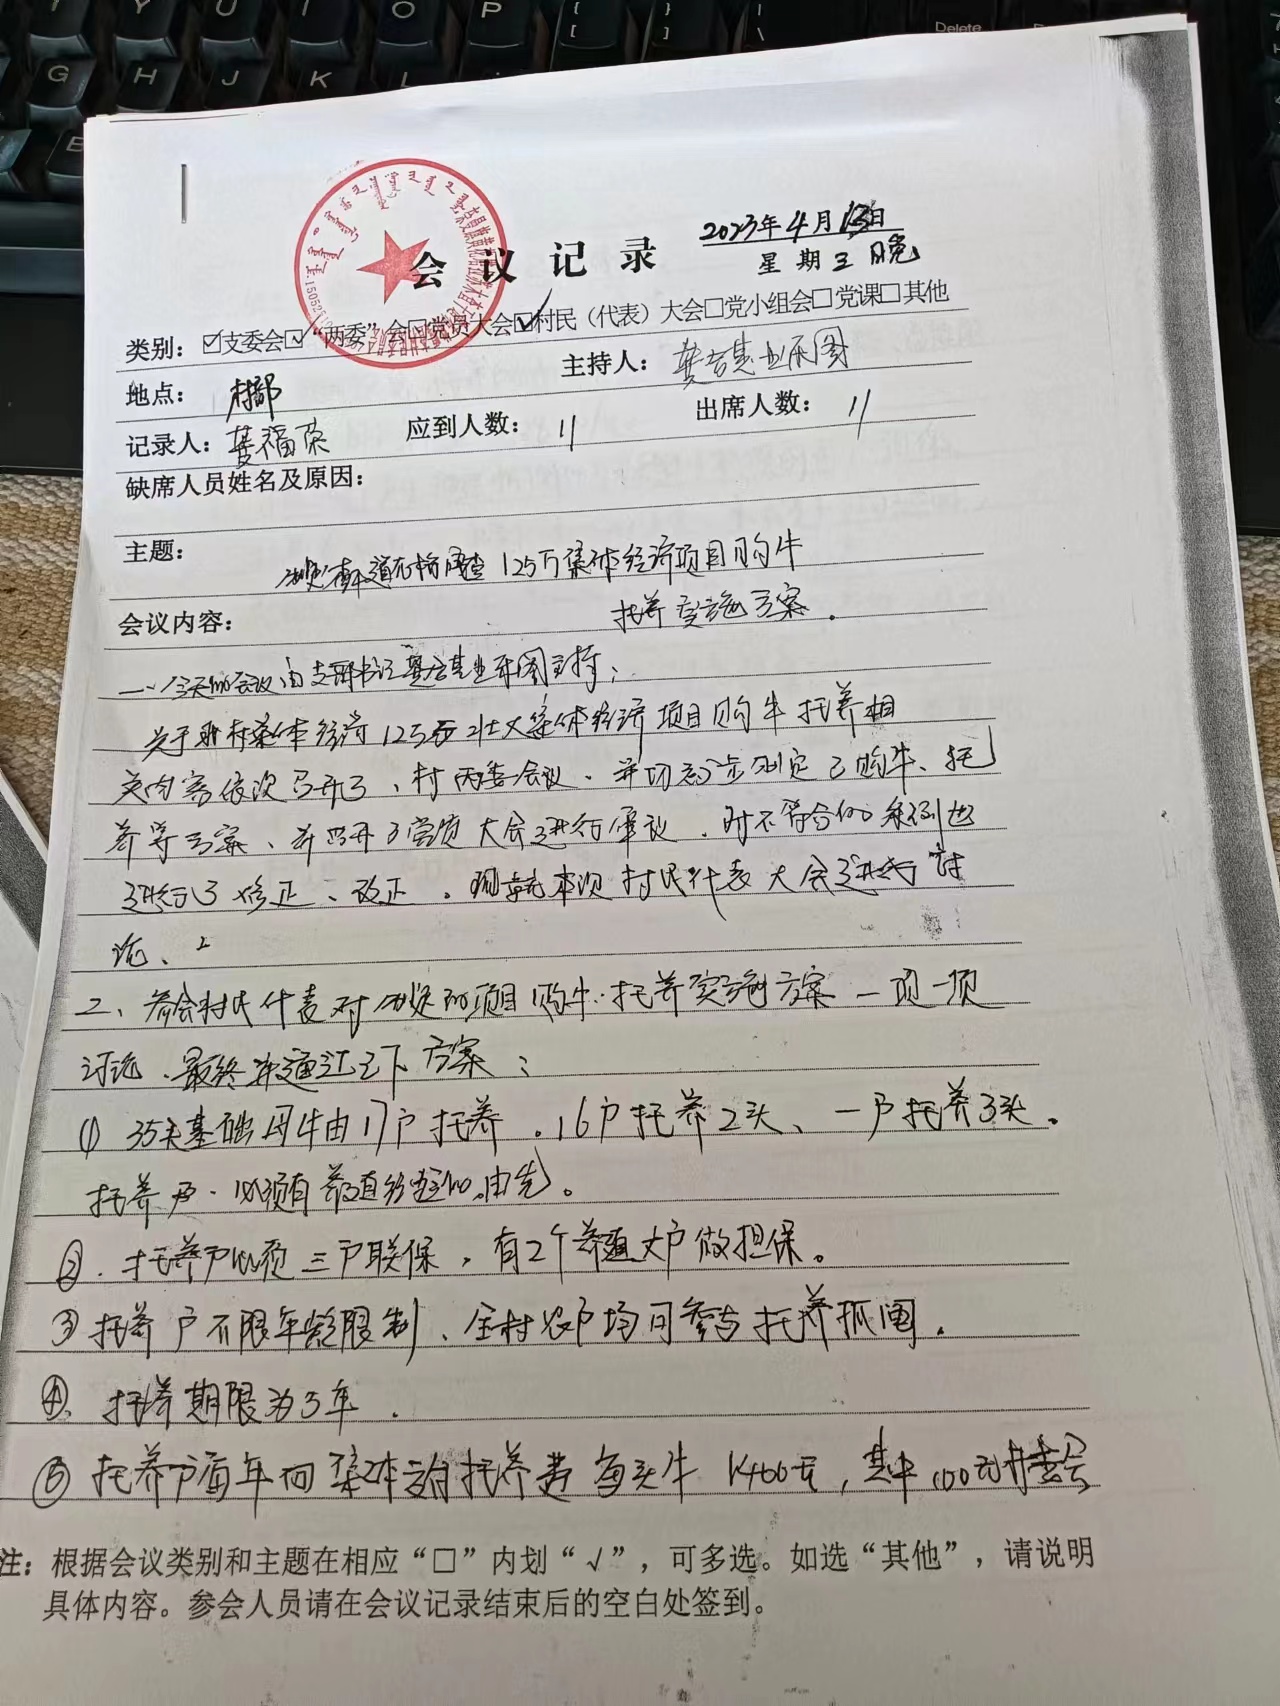 会议记录
2023年4月13日
星期三 晚
类别：☑支委会☑“两委”会□党员大会☑村民（代表）大会□党小组会□党课□其他
地点：村部 主持人：
记录人：
应到人数：11 出席人数：11
缺席人员姓名及原因：
主题：125万集体经济项目购牛
会议内容： 托养实施方案.
一、今天的会议由支部书记主持；
关于我村集体经济125万壮大集体经济项目购牛托养相
关内容依次召开了、村两委会议、并初步制定了购牛、托
养等方案、并召开了党员大会进行审议，对不符合的条例也
进行了修正、改正。现就本次村民代表大会进行讨
论、
二、参会村民代表对的项目购牛.托养实施方案一项一项
讨论、最终通过以下方案；
(1) 35头基础母牛由17户托养.16户托养2头、一户托养3头.
托养户.必须有养殖经验的.由先。
②. 托养户必须三户联保，有2个养殖大户做担保。
③托养户不限年龄限制、全村农户均可参与托养抓阄.
④、托养期限为3年.
⑤托养户每年向集体交付托养费每头牛1400元，其中100元
注：根据会议类别和主题在相应“□”内划“√”，可多选。如选“其他”，请说明
具体内容。参会人员请在会议记录结束后的空白处签到。